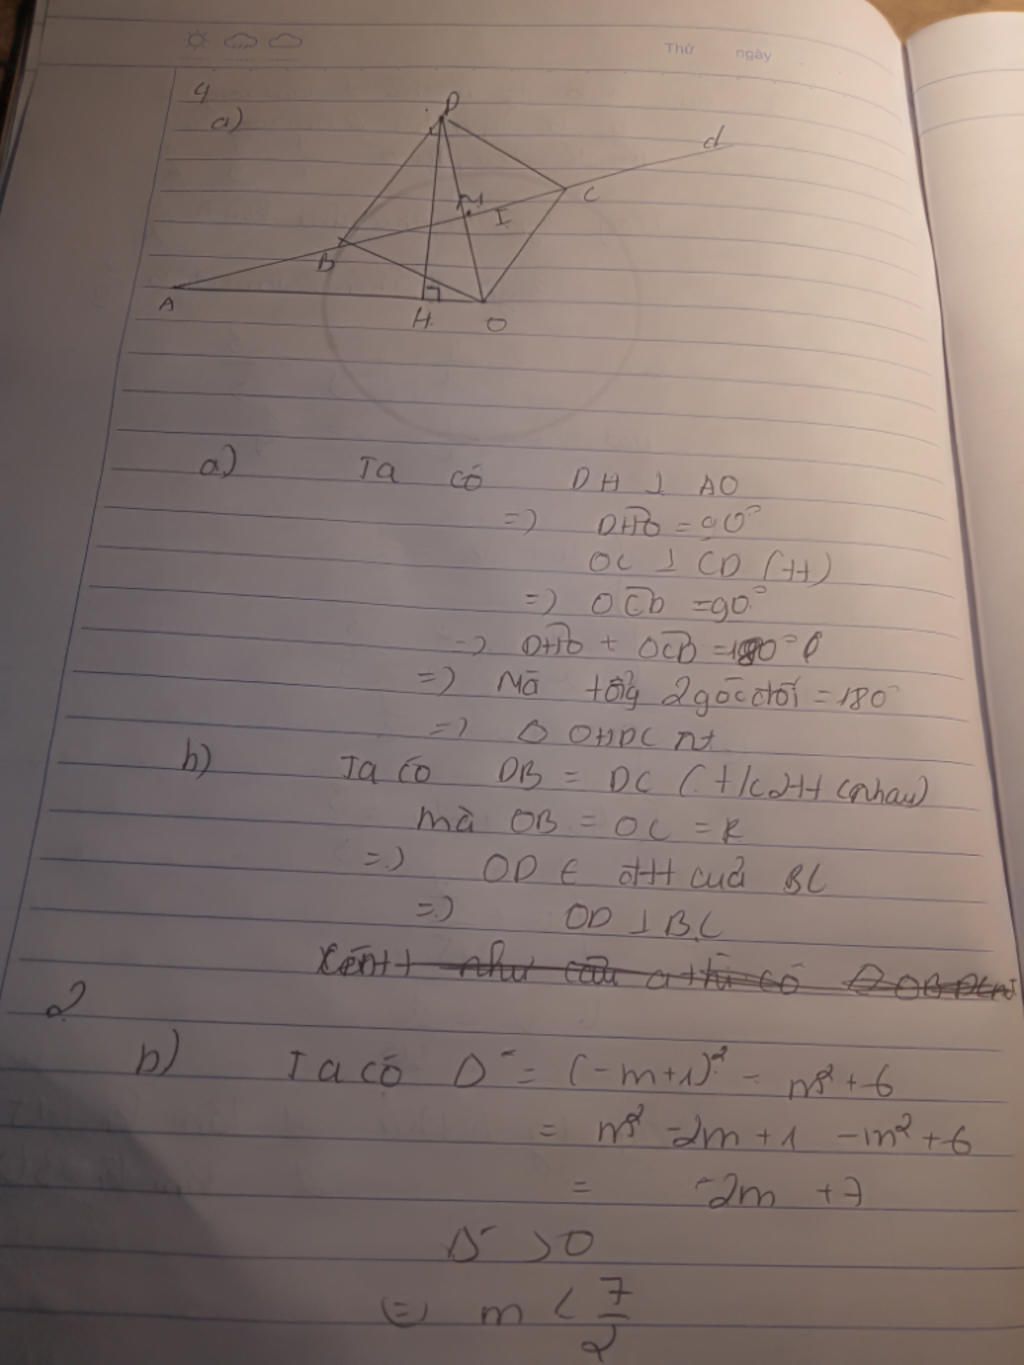 Thứ ngày
4
a)
D
d
M
I
C
B
A
H
O
a) Ta có DH ⊥ AO
=> DHO = 90°
OC ⊥ CD (tt)
=> OCD = 90°
=> DHO + OCD = 180°
=> Mà tổng 2 góc đối = 180°
=> ◊ OHDC nt
b) Ta có DB = DC (t/c 2tt cắt nhau)
mà OB = OC = R
=> OD ∈ đtt của BC
=> OD ⊥ BC
như câu a thì có
2
b) Ta có Δ' = (-m+1)² - m² + 6
= m² -2m + 1 - m² + 6
= -2m + 7
Δ' > 0
(=) m < 7/2